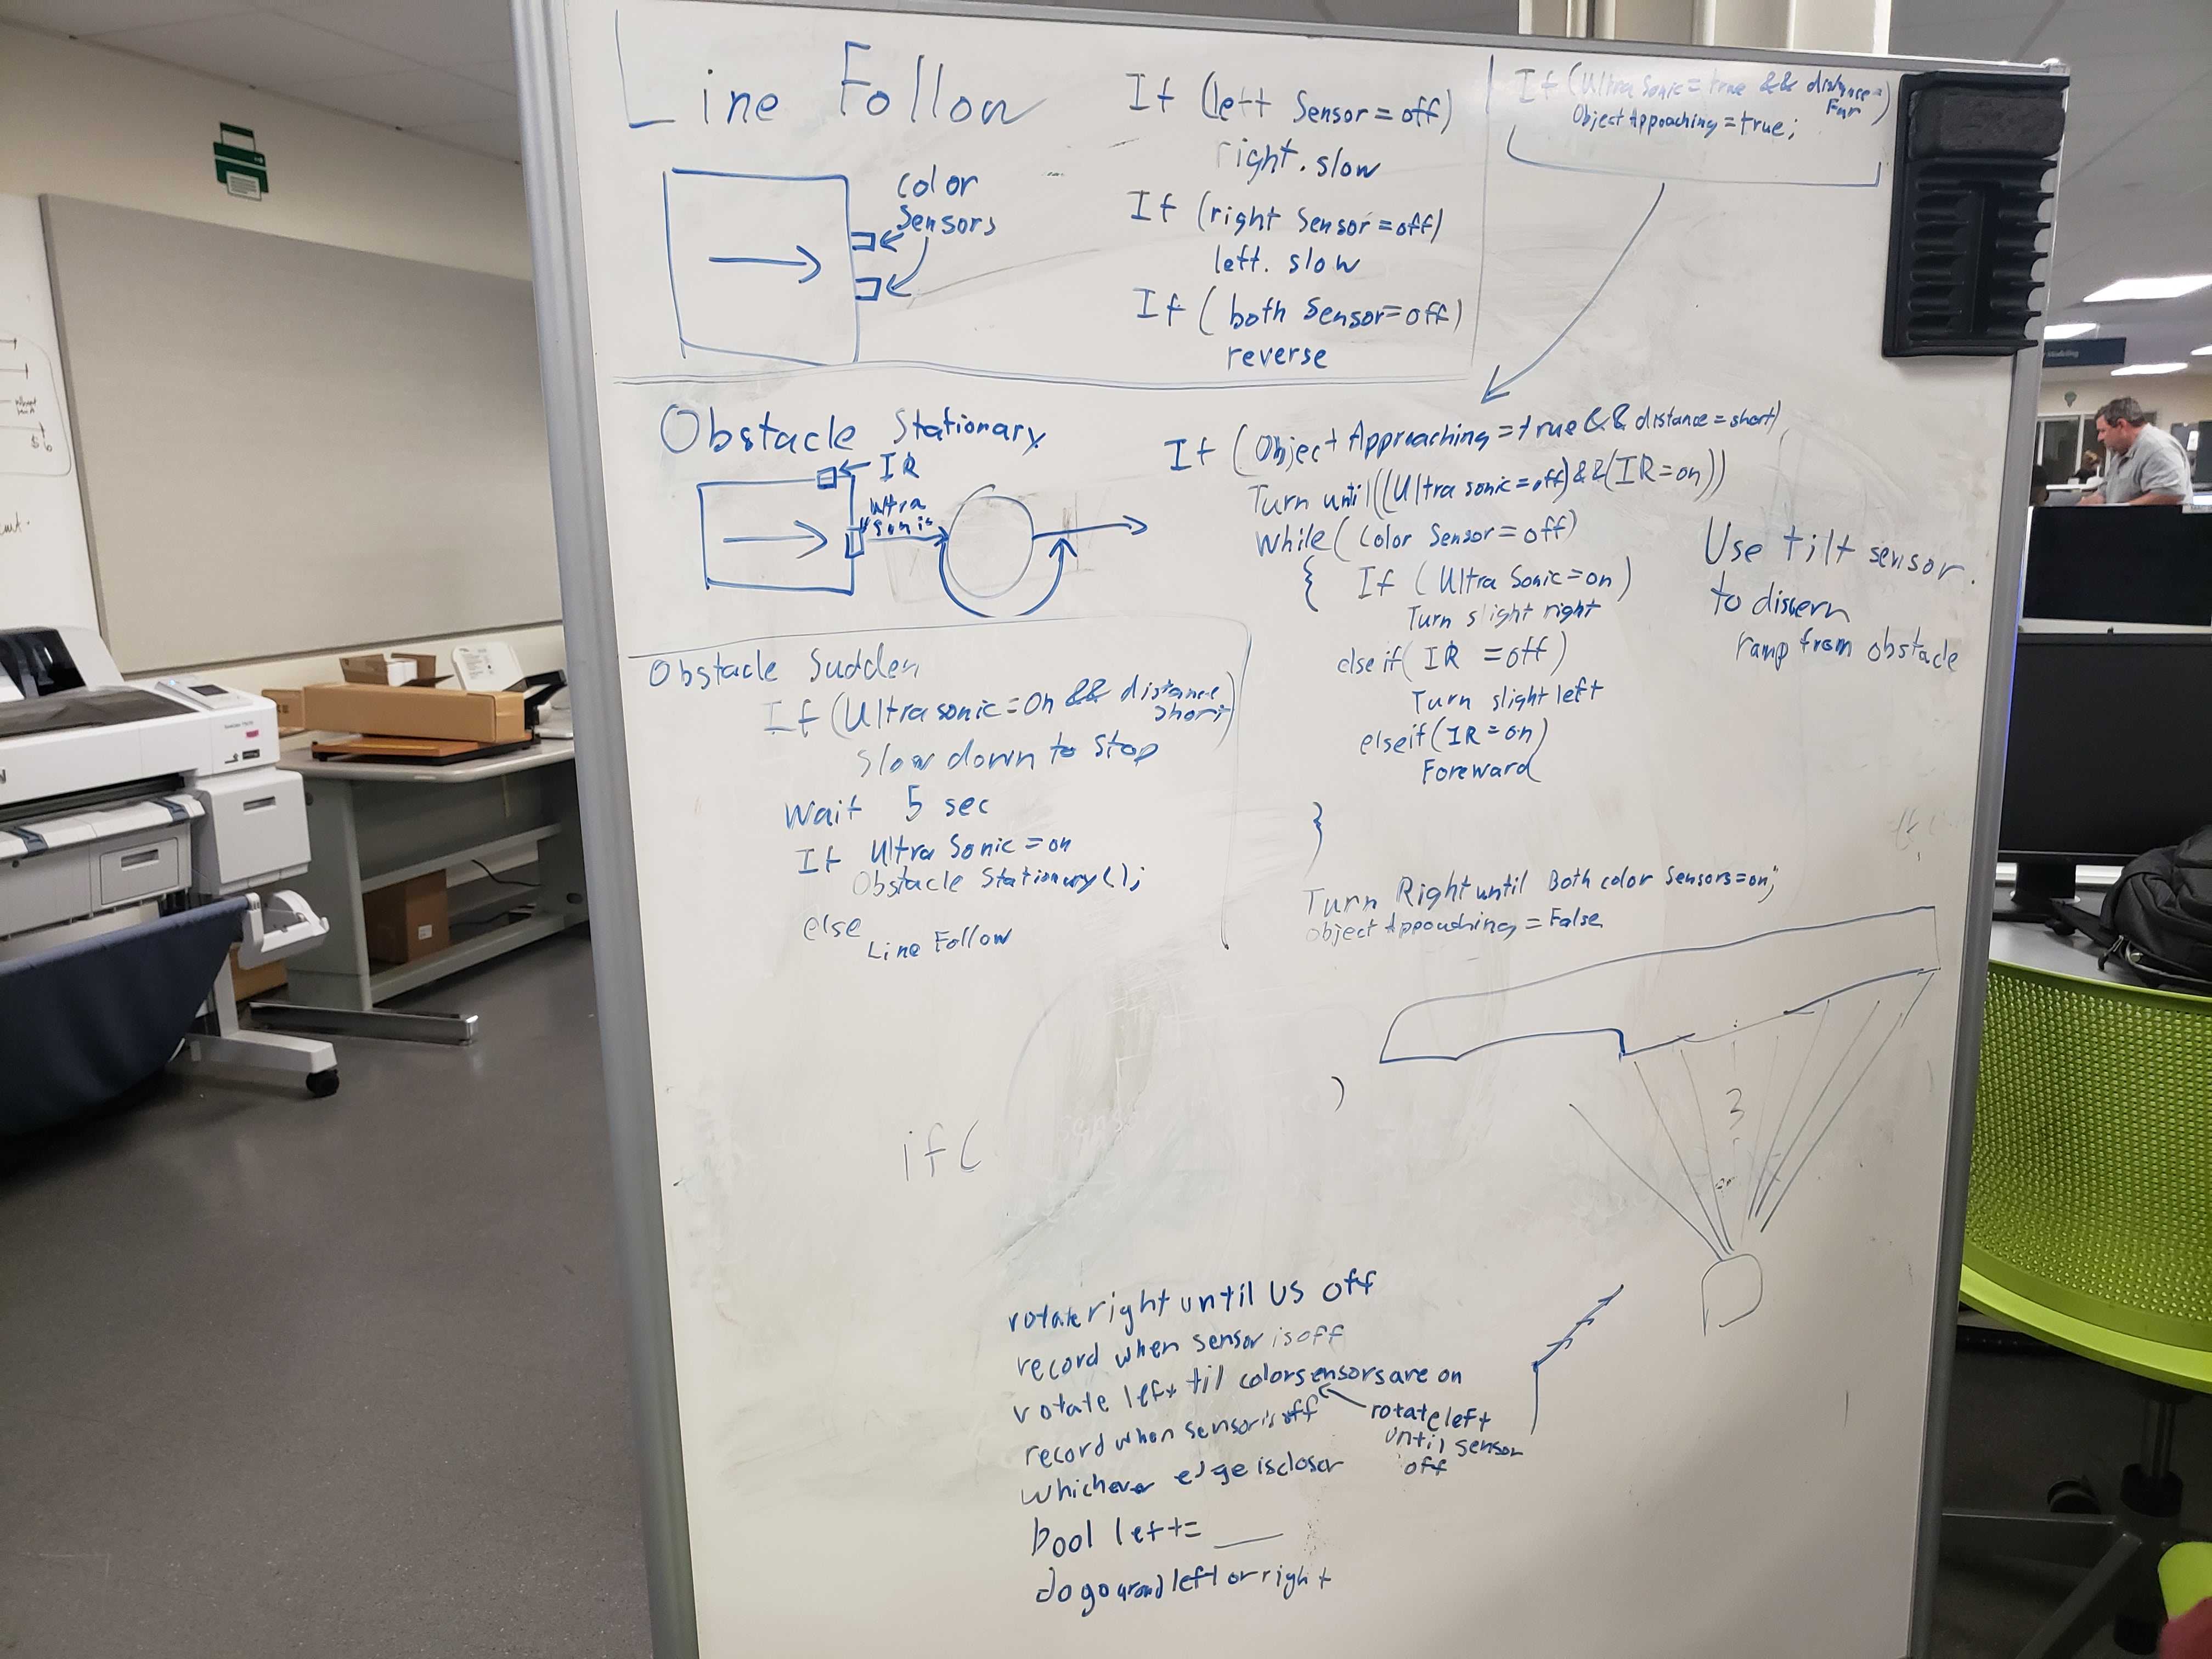 Line Follow
color
sensors
If (left Sensor = off)
right. slow
If (right Sensor = off)
left. slow
If (both Sensor = off)
reverse
If (Ultra Sonic = true && distance =
Far)
Object Appoaching = true;
Obstacle Stationary
IR
Ultra
Sonic
If (Object Approaching = true && distance = short)
Turn until ((Ultra sonic = off) && (IR = on))
while (Color Sensor = off)
{ If (Ultra Sonic = on)
Turn slight right
else if (IR = off)
Turn slight left
else if (IR = on)
Foreward
}
Turn Right until Both color Sensors = on;
object Appoaching = False
Use tilt sensor.
to discern
ramp from obstacle
Obstacle Sudden
If (Ultra sonic = On && distance
short)
Slow down to stop
Wait 5 sec
If Ultra Sonic = on
Obstacle Stationary();
else
Line Follow
if(
)
3
rotate right until US off
record when sensor is off
rotate left til color sensors are on
rotate left
until sensor
off
record when sensor is off
whichever edge is closer
bool left = ___
do go around left or right